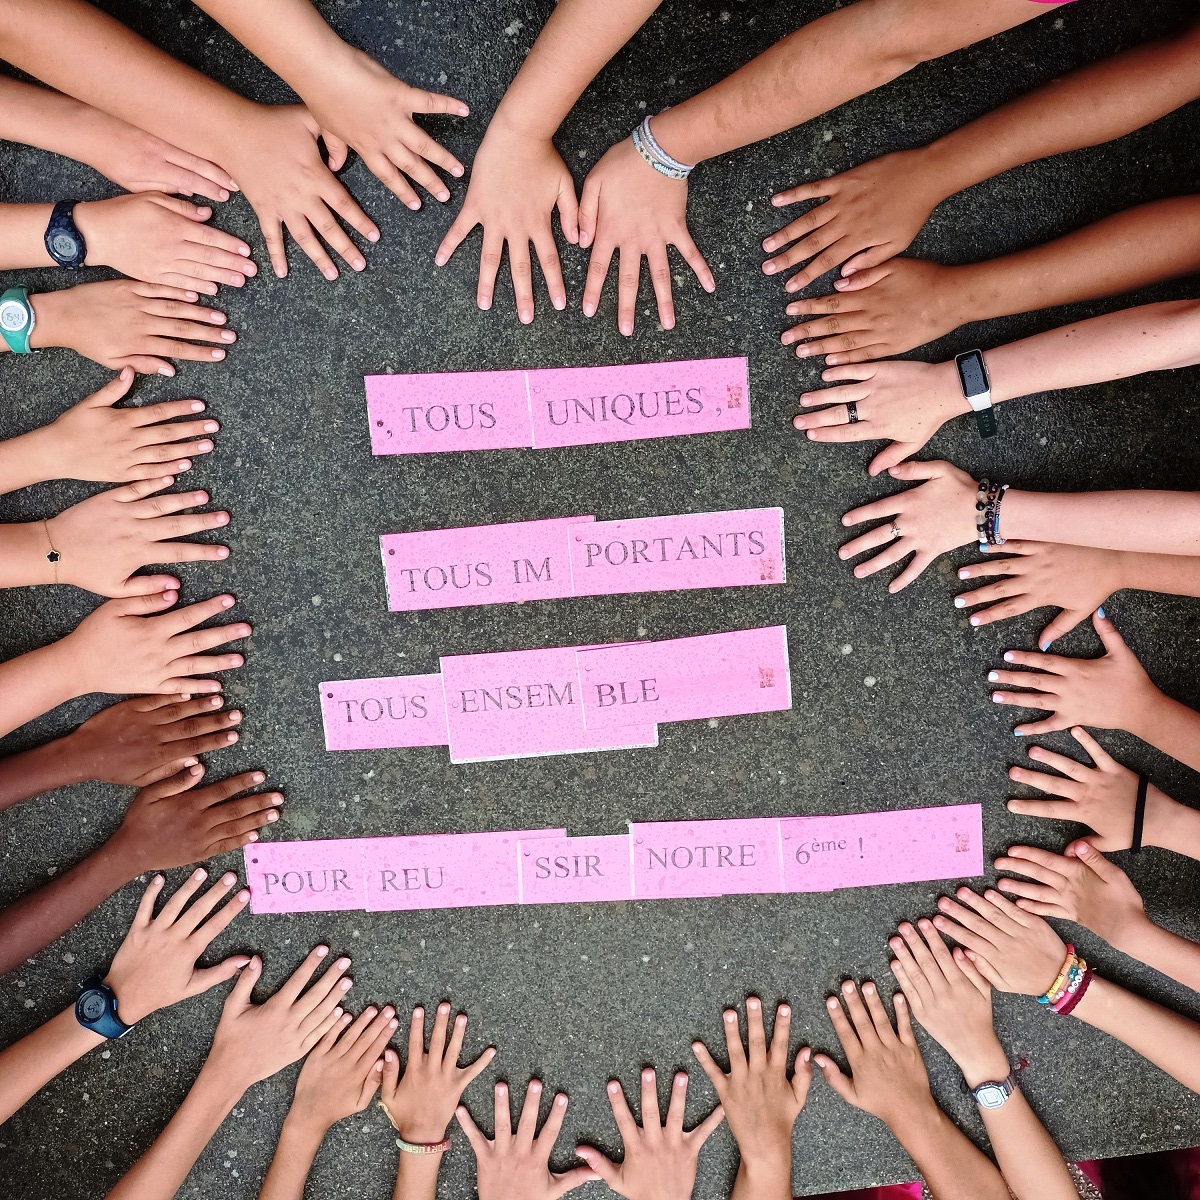 , TOUS UNIQUES ,
TOUS IM PORTANTS
TOUS ENSEM BLE
POUR REU SSIR NOTRE 6ème !